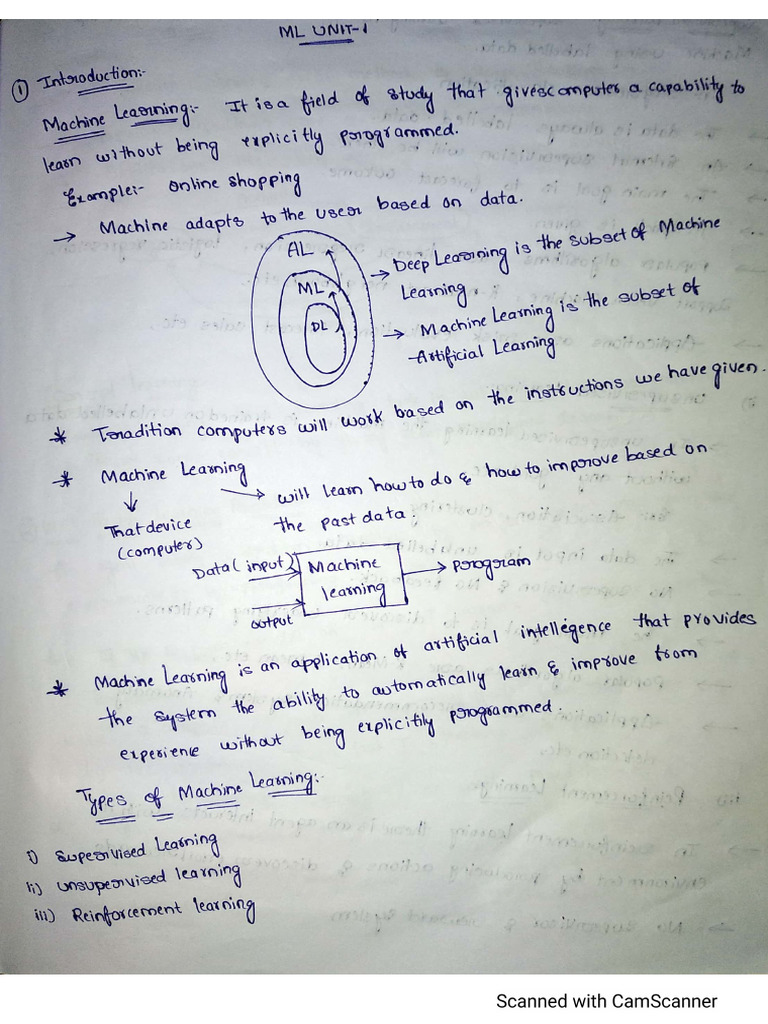 ML UNIT-1
① Introduction:-
Machine Learning:- It is a field of study that gives computer a capability to
learn without being explicitly programmed.
Example:- online shopping
→ Machine adapts to the user based on data.
AL
ML
DL
→ Deep Learning is the subset of Machine
Learning.
→ Machine Learning is the subset of
Artificial Learning
* Tradition computers will work based on the instructions we have given.
* Machine Learning
→ will learn how to do & how to improve based on
the past data.
↓
That device
(computer)
Data (input)
Machine
learning
→ program
output
* Machine Learning is an application of artificial intellegence that provides
the system the ability to automatically learn & improve from
experience without being explicitily programmed.
Types of Machine Learning:-
i) Supervised Learning
ii) unsupervised learning
iii) Reinforcement learning
Scanned with CamScanner